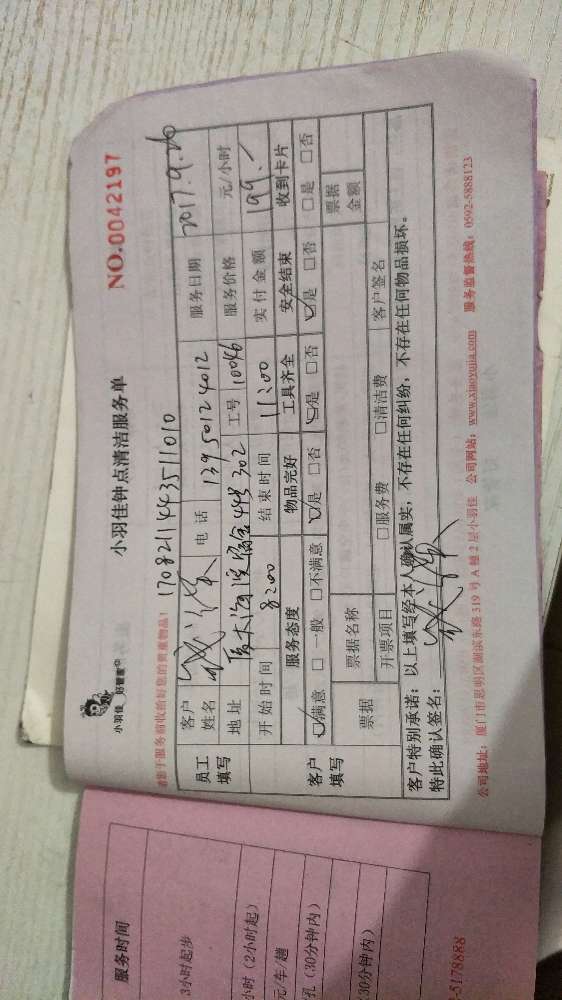 小羽佳 好管家
小羽佳钟点清洁服务单
NO.0042197
请您于服务前收拾好您的贵重物品!
1708211443511010
员工填写
客户姓名
电话 13950124012
服务日期 2017.9.20
地址
302
工号 10046
服务价格 元/小时
开始时间 8:00
结束时间 11:00
实付金额 199.-
客户填写
服务态度 物品完好 工具齐全 安全结束 收到卡片
☑满意 □一般 □不满意 ☑是 □否 ☑是 □否 ☑是 □否 □是 □否
票据
票据名称
票据金额
开票项目 □服务费 □清洁费 客户签名
客户特别承诺:以上填写经本人确认属实,不存在任何纠纷,不存在任何物品损坏。
特此确认签名:
公司地址:厦门市思明区湖滨东路319号A幢2层小羽佳 公司网站:www.xiaoyujia.com 服务监督热线:0592-5888123
服务时间
3小时起步
小时(2小时起)
元/车/趟
孔(30分钟内)
30分钟内)
3178888